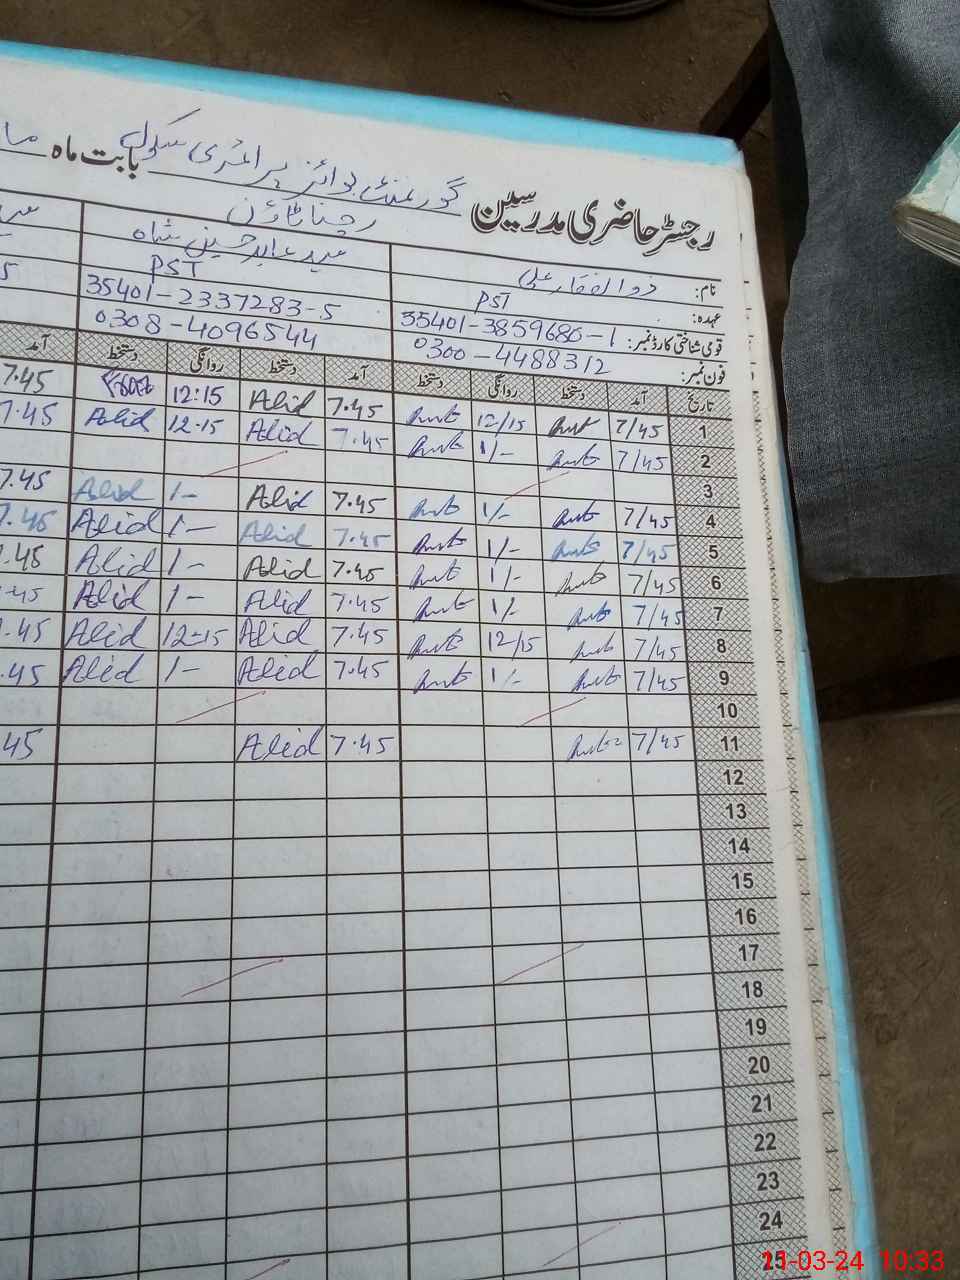 رجسٹر حاضری مدرسین گورنمنٹ بوائز پرائمری سکول بابت ماہ
رچنا ٹاؤن
نام: ذوالفقار علی سید عابد حسین شاہ
عہدہ: PST PST
قومی شناختی کارڈ نمبر: 35401-3859680-1 35401-2337283-5
فون نمبر: 0300-4488312 0308-4096544
تاریخ آمد دستخط روانگی دستخط آمد دستخط روانگی دستخط آمد
1 7/45 12/15 7.45 Abid 12:15 7.45
2 7/45 1/- 7.45 Abid 12.15 Abid 7.45
3
4 7/45 1/- 7.45 Abid 1- Abid 7.45
5 7/45 1/- 7.45 Abid 1- Abid 7.45
6 7/45 1/- 7.45 Abid 1- Abid .45
7 7/45 1/- 7.45 Abid 1- Abid .45
8 7/45 12/15 7.45 Abid 12.15 Abid .45
9 7/45 1/- 7.45 Abid 1- Abid .45
10
11 7/45 7.45 Abid 45
12
13
14
15
16
17
18
19
20
21
22
23
24
25
11-03-24 10:33